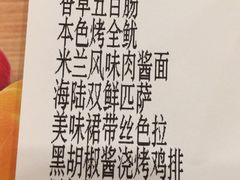 香草五百肠
本色烤全鱿
米兰风味肉酱面
海陆双鲜匹萨
美味裙带丝色拉
黑胡椒酱浇烤鸡排